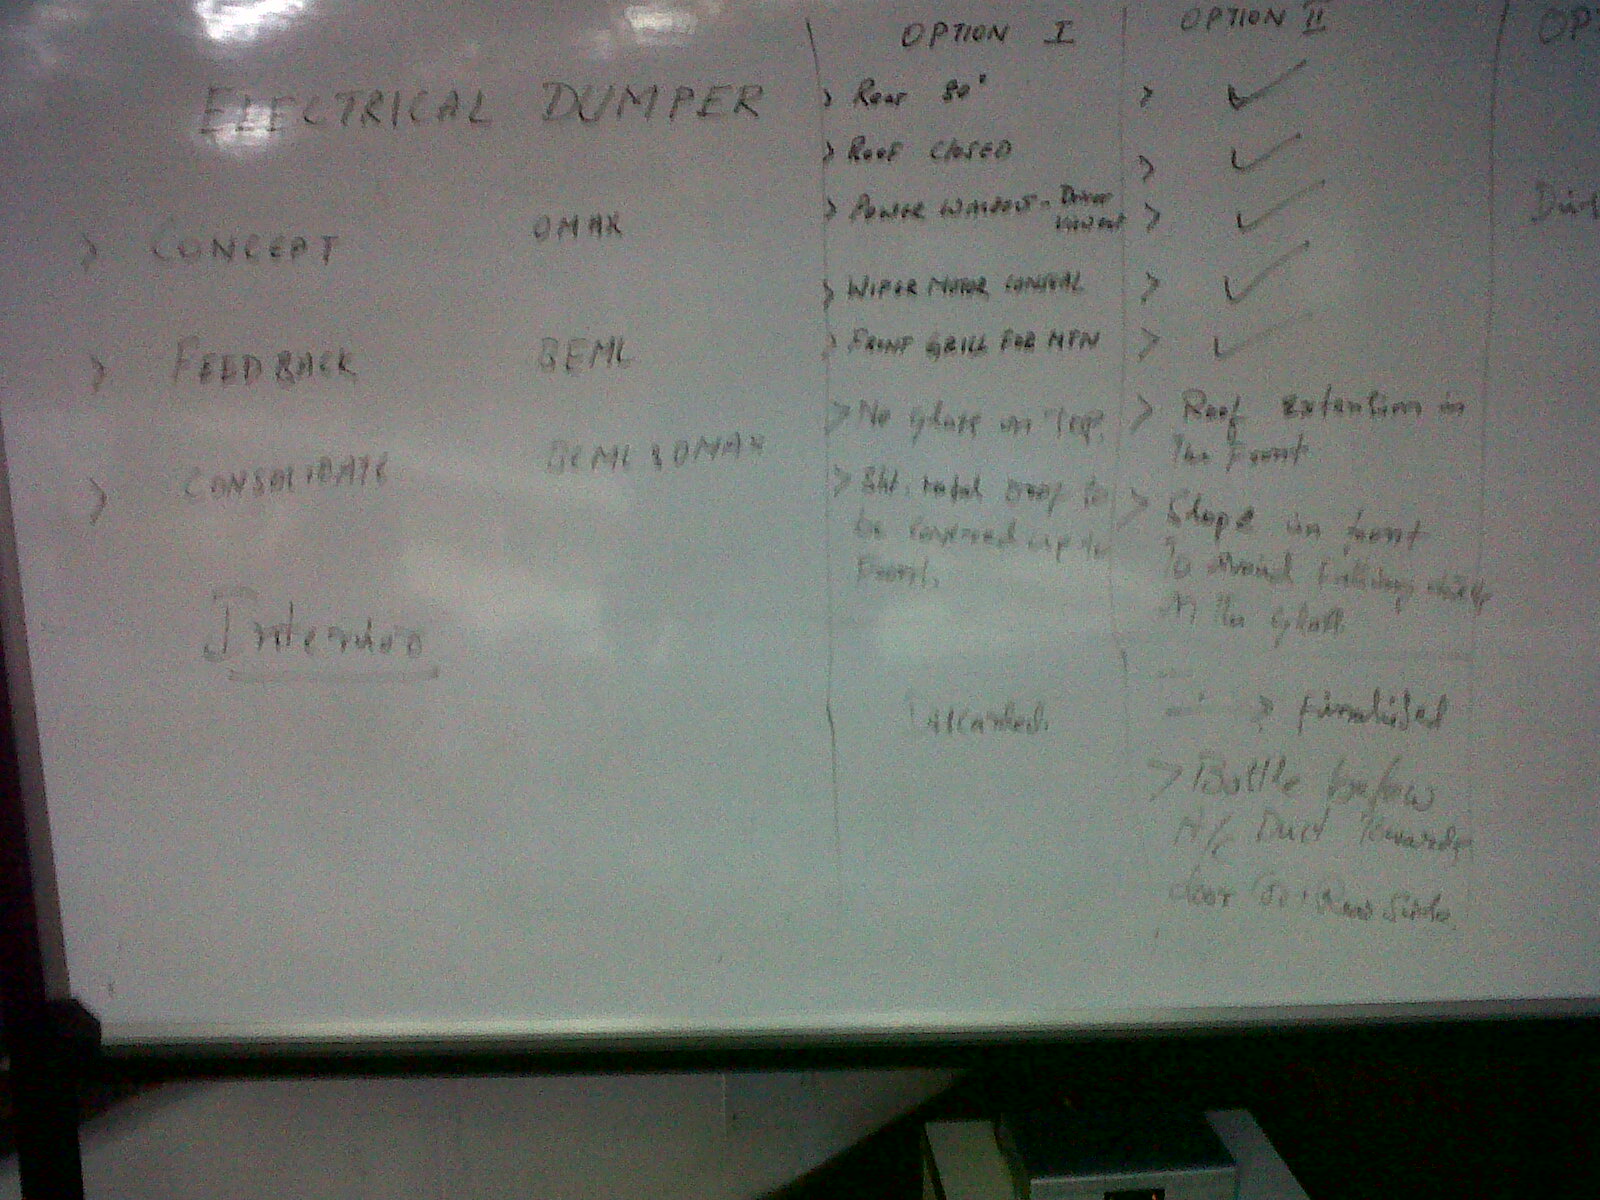 ELECTRICAL DUMPER
> CONCEPT OMAX
> FEEDBACK BEML
> CONSOLIDATE BEML & OMAX
Interior
OPTION I
> Rear 80°
> ROOF CLOSED
> POWER WINDOW - Driver
> WIPER MOTOR
> FRONT GRILL FOR MTN
> No glass on Top.
> Sht. metal roof to
be covered up to
Front.
Discarded.
OPTION II
> ✓
> ✓
> ✓
> ✓
> ✓
> Roof extention in
The Front
> Slope in front
To avoid falling
on the glass.
> finalised
> Bottle below
A/C Duct Towards
door Rear Side
OPT